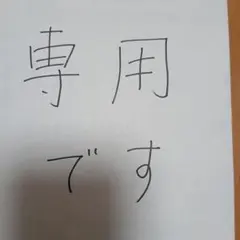 専用
です